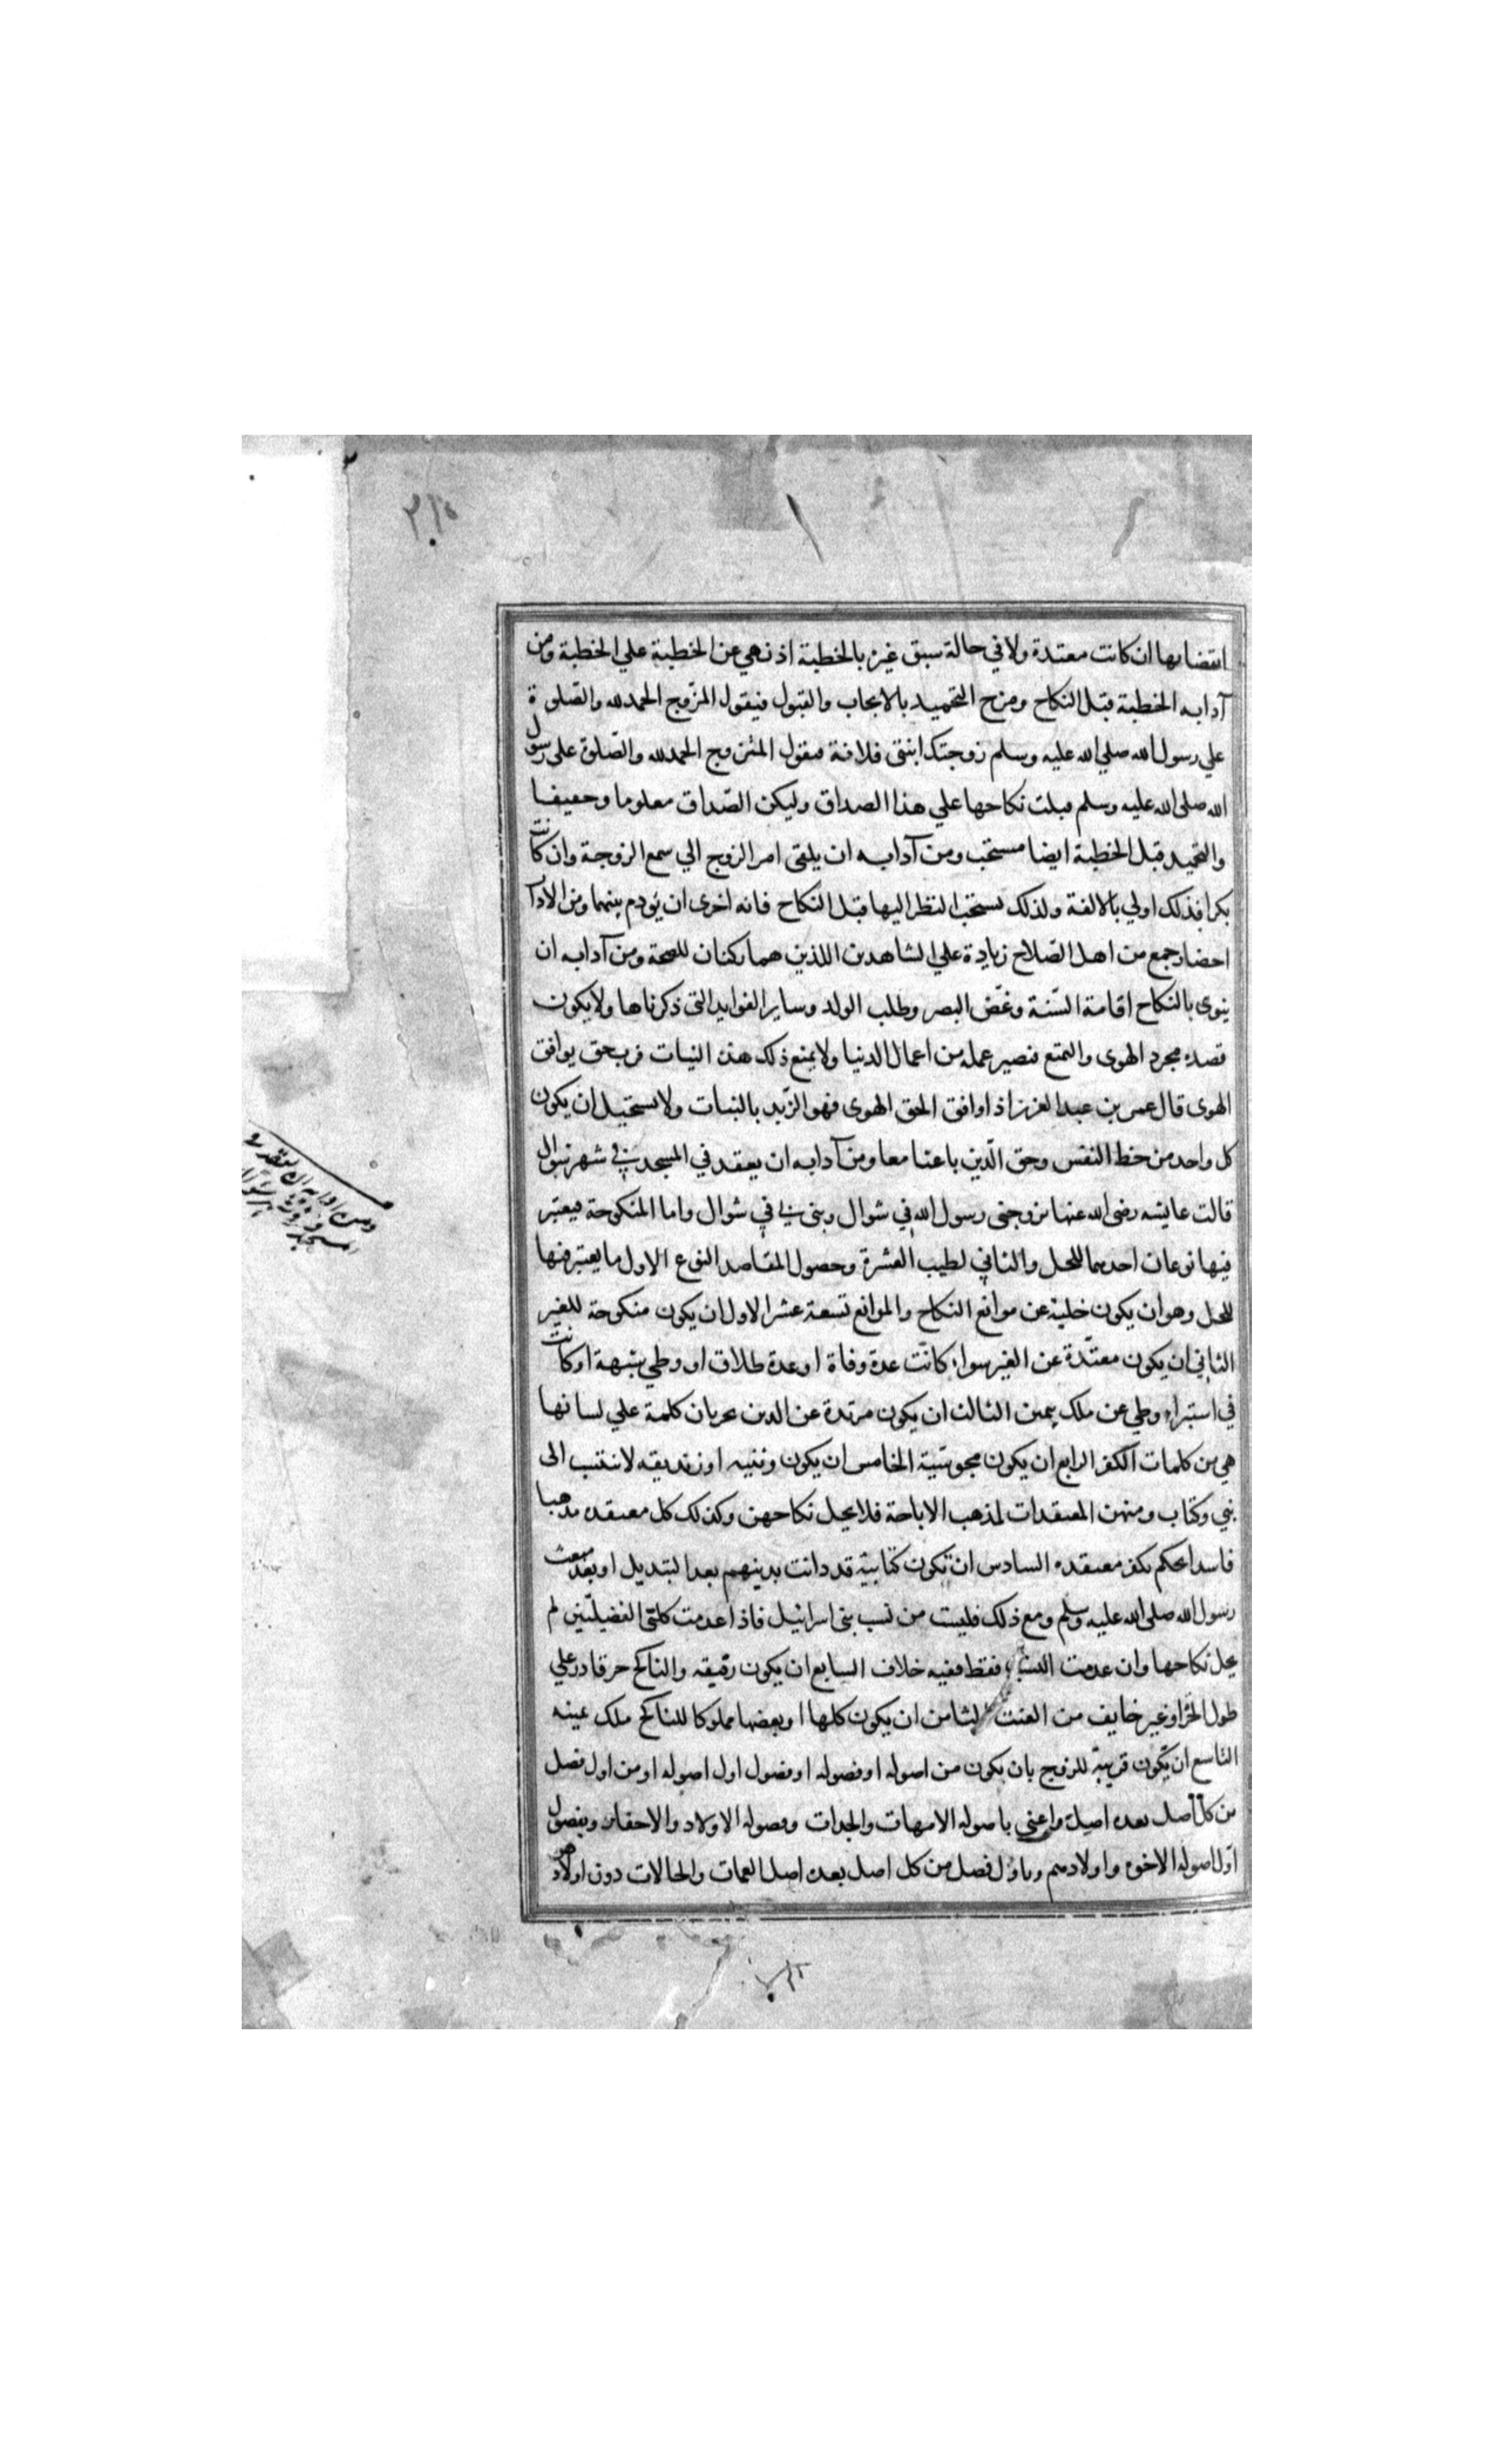 ٢١٥
انقضائها ان كانت معتدة ولا في حالة سبق غيره بالخطبة اذ نهي عن الخطبة علي الخطبة ومن
آدابه الخطبة قبل النكاح ومزج التحميد بالايجاب والقبول فيقول المزوج الحمد لله والصّلوة
علي رسول الله صلي الله عليه وسلم زوجتك ابنتي فلانة فيقول المتزوج الحمد لله والصّلوة علي رسول
الله صلى الله عليه وسلم قبلت نكاحها علي هذا الصداق وليكن الصّداق معلوما وخفيفا
والتحميد قبل الخطبة ايضا مستحب ومن آدابه ان يلقى امر الزوج الي سمع الزوجة وان كانت
بكرا فذلك اولي بالالفة ولذلك يستحب النظر اليها قبل النكاح فانه احرى ان يؤدم بينهما ومن الاداب
احضار جمع من اهل الصّلاح زيادة علي الشاهدين اللذين هما ركنان للصحة ومن آدابه ان
ينوي بالنكاح اقامة السّنة وغضّ البصر وطلب الولد وساير الفوايد التي ذكرناها ولا يكون
قصده مجرد الهوى والتمتع فيصير عمله من اعمال الدنيا ولا يمنع ذلك هذه النيات فرب حق يوافق
الهوى قال عمر بن عبد العزيز اذا وافق الحق الهوى فهو الزّبد بالنرسيان ولا يستحيل ان يكون
كل واحد من حظ النفس وحق الدّين باعثا معا ومن آدابه ان يعقد في المسجد في شهر شوال
قالت عايشه رضي الله عنها تزوجني رسول الله في شوال وبنى بي في شوال واما المنكوحة فيعتبر
فيها نوعان احدهما للحل والثاني لطيب العشرة وحصول المقاصد النوع الاول ما يعتبر فيها
للحل وهو ان يكون خلية عن موانع النكاح والموانع تسعة عشر الاول ان يكون منكوحة للغير
الثاني ان يكون معتدّة عن الغير سواء كانت عدة وفاة او عدة طلاق او وطي بشبهة او كانت
في استبراء وطي عن ملك يمين الثالث ان يكون مرتدة عن الدين بجريان كلمة علي لسانها
هي من كلمات الكفر الرابع ان يكون مجوسّية الخامس ان يكون وثنيه او زنديقه لا تنتسب الى
نبي وكتاب ومنهن المعتقدات لمذهب الاباحة فلا يحل نكاحهن وكذلك كل معتقده مذهبا
فاسدا يحكم بكفر معتقده السادس ان تكون كتابيّة قد دانت بدينهم بعد التبديل او بعد مبعث
رسول الله صلى الله عليه وسلم ومع ذلك فليست من نسب بني اسرائيل فاذا عدمت كلتي الفضيلتين لم
يحل نكاحها وان عدمت النسب فقط ففيه خلاف السابع ان يكون رقيقه والناكح حر قادر علي
طول الحرّ او غير خايف من العنت الثامن ان يكون كلها او بعضها مملوكا للناكح ملك يمينه
التاسع ان تكون قريبة للزوج بان يكون من اصوله او فصوله او فصول اول اصوله او من اول فصل
من كل اصل بعده اصل واعني باصوله الامهات والجدات وفصوله الاولاد والاحفاد وبفصول
اوّل اصوله الاخوه واولادهم وباول فصل من كل اصل بعده اصل العمات والخالات دون اولادهن
ومن ادابه ان يعقد في
المسجد وفي شهر شوال